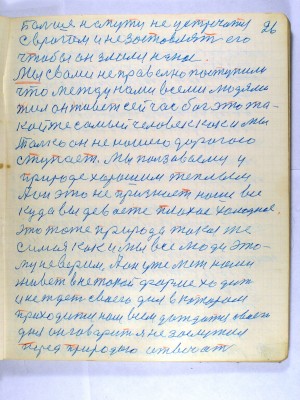 26
больше к нему ти не встречать
с врагом и не заставлять его
чтобы он злому начал.
Мы с вами не правельно поступили
что между нами всеми людями
жил он живет сейчас бог это та-
кой же самый человек как и мы
Только он не нашего дорогаго
ступает. Мы ползаваемся у
природе хорошим теплым
А он это не признает наше все
куда вы деваете плохое холодное.
это тоже природа такая же
самая как и мы все люди это-
му не верим, А он уже меж нами
живет в нетокой форме ходит
и не ждет своего дня в котором
приходится нам всем дождать своего
дня он говарит я не заслужил
перед природою отвечать